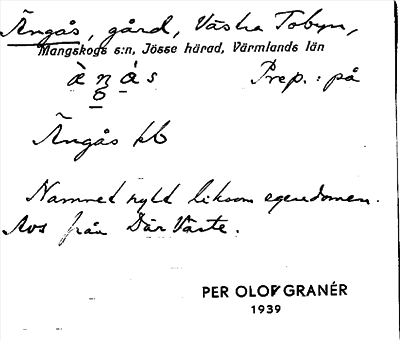 Ängås, gård, Västra Tobyn,
Mangskogs s:n, Jösse härad, Värmlands län
Prep.: på
Ängås hb
Namnet nytt liksom egendomen.
Avs från Där Väste.
PER OLOF GRANÉR
1939